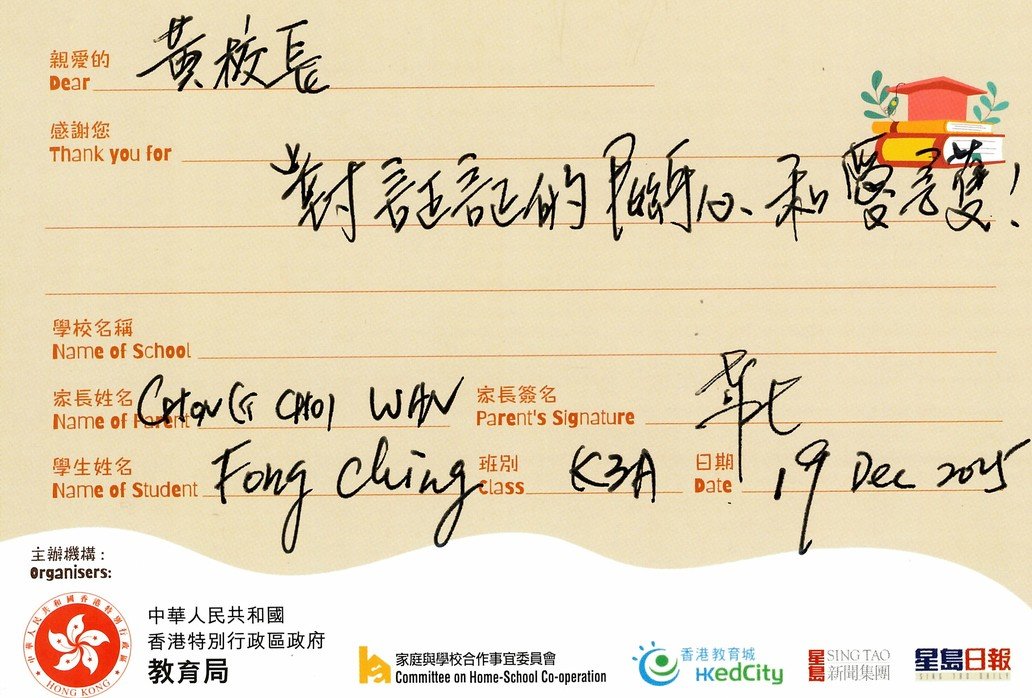 親愛的
Dear 黃校長
感謝您
Thank you for
對証証的關心和愛護!
學校名稱
Name of School
家長姓名
Name of Parent CHONG CHOI WAN
家長簽名
Parent's Signature
學生姓名
Name of Student Fong Ching
班別
Class K3A
日期
Date 19 Dec 2025
主辦機構:
Organisers:
中華人民共和國香港特別行政區
HONG KONG
中華人民共和國
香港特別行政區政府
教育局
家庭與學校合作事宜委員會
Committee on Home-School Co-operation
香港教育城
HKedCity
星島 SING TAO
新聞集團
星島日報
SING TAO DAILY